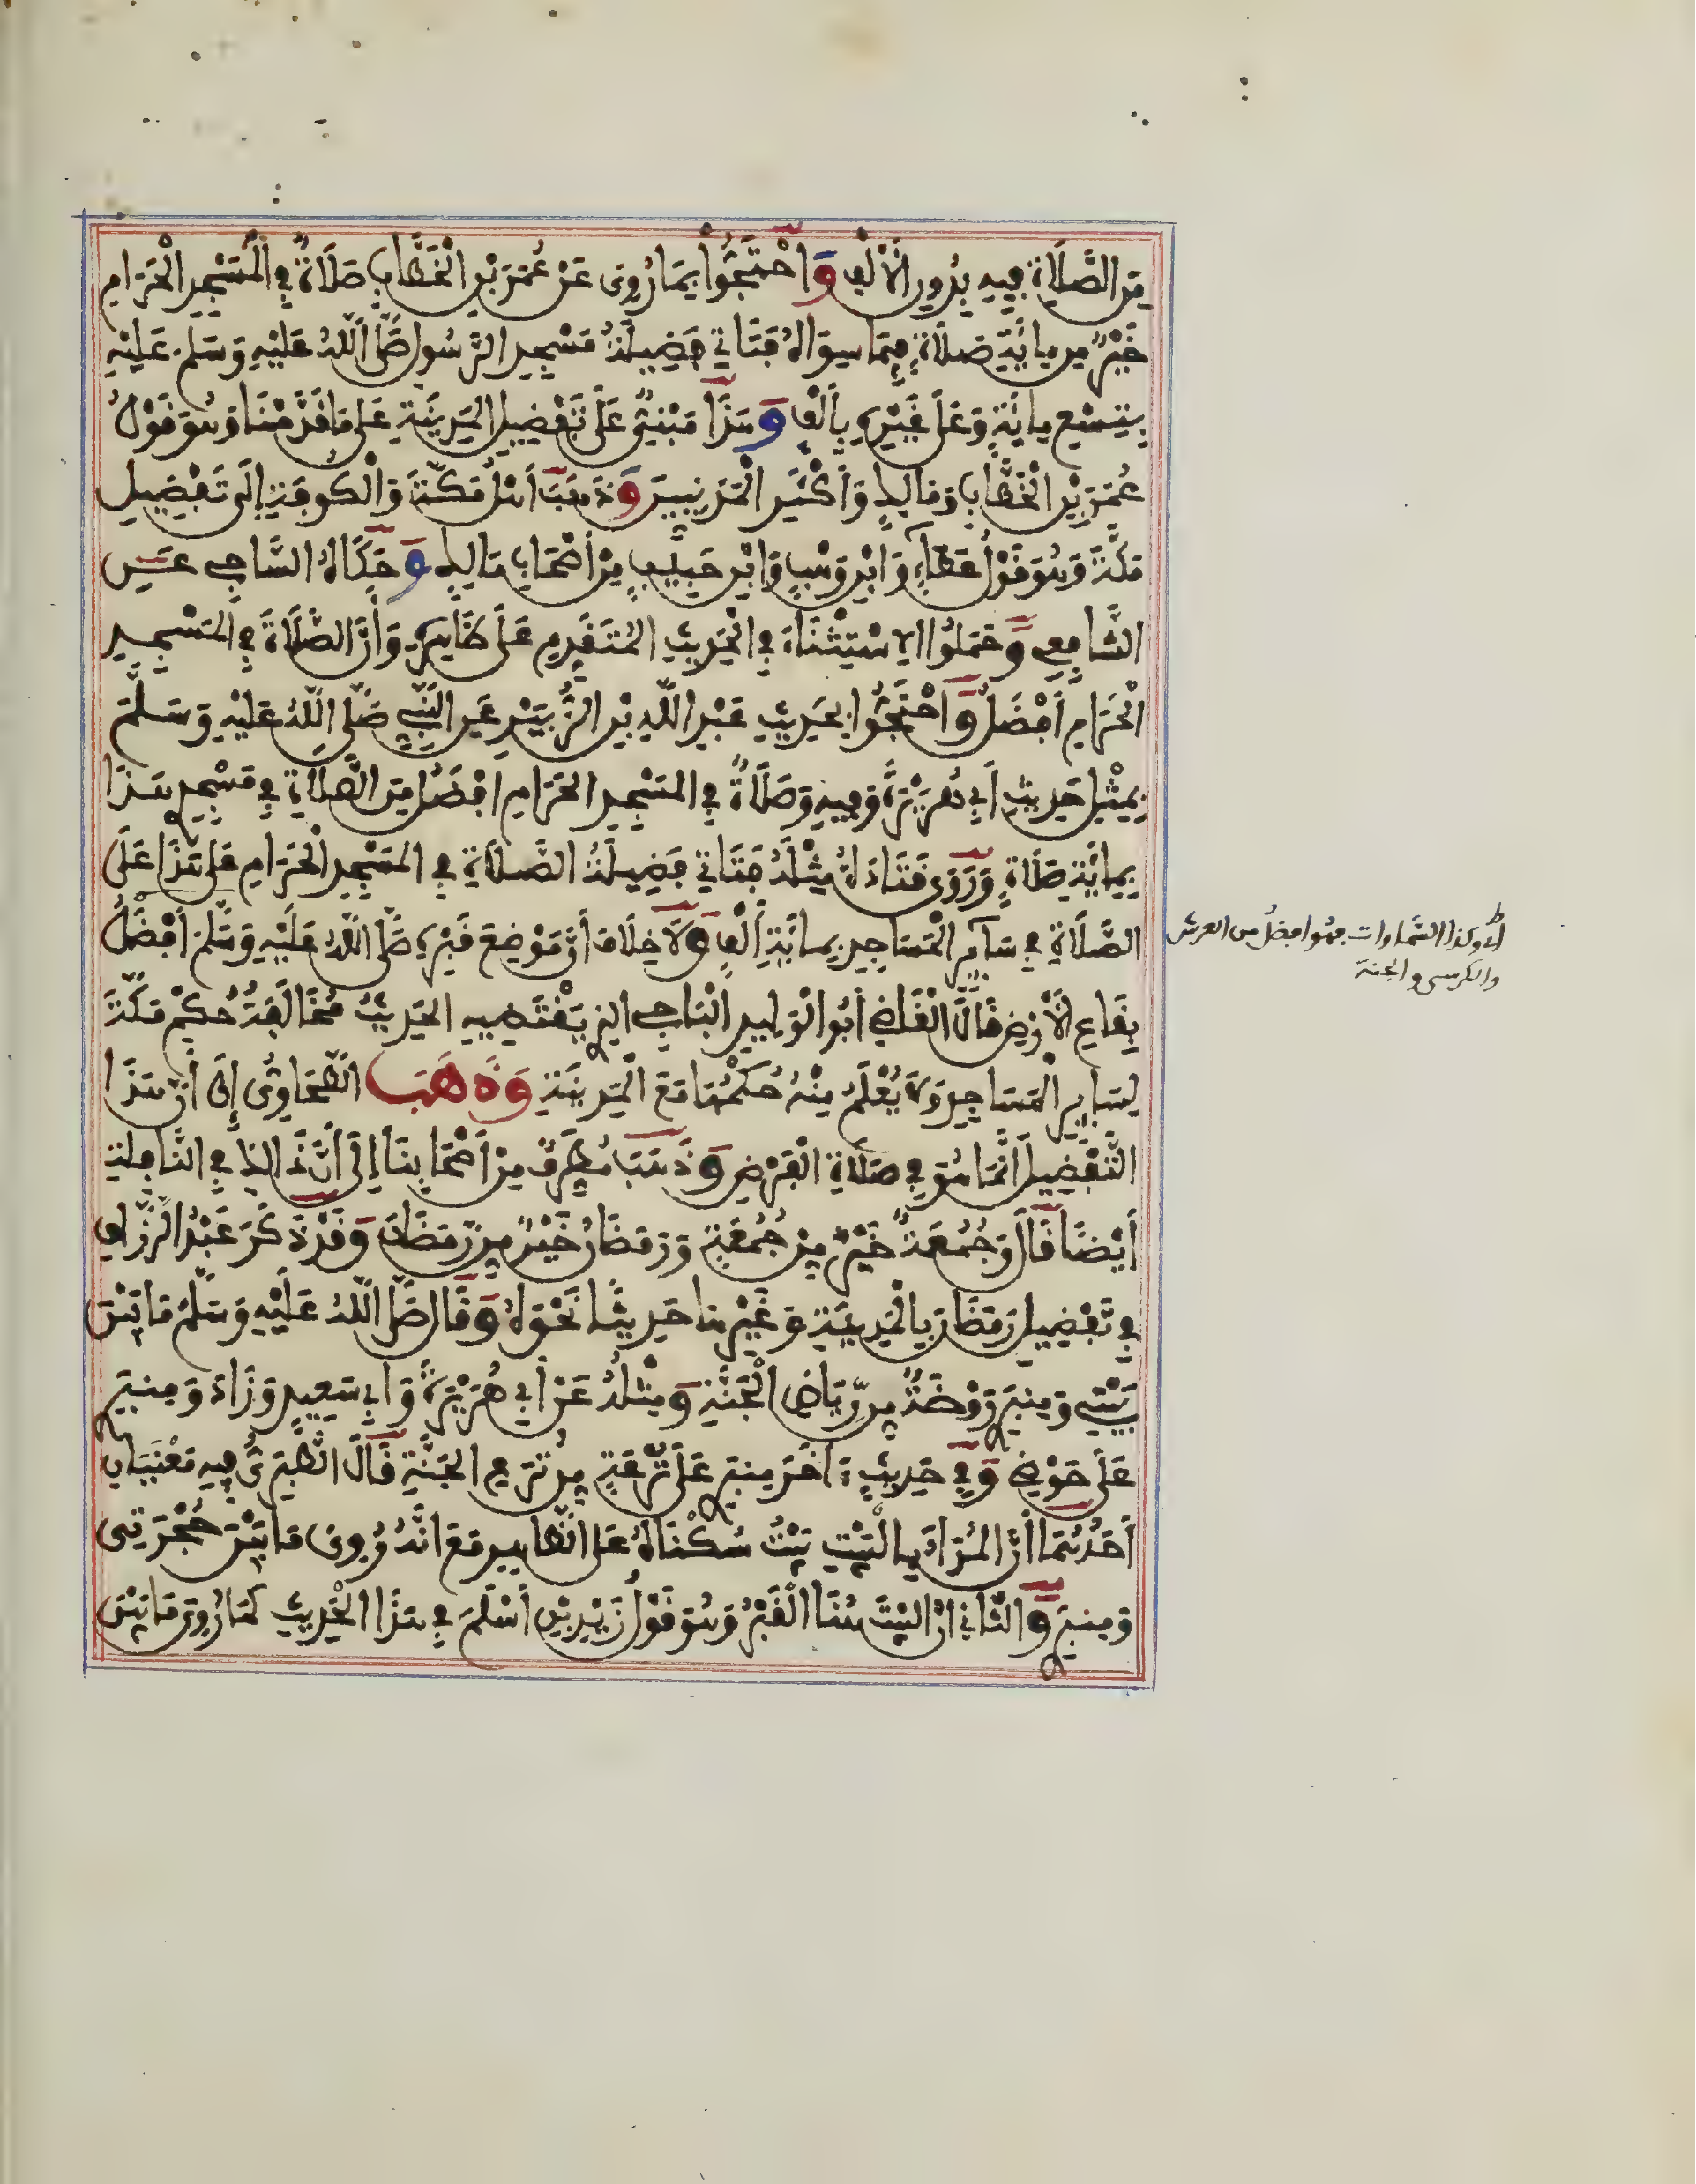 مِنَ الصَّلَاةِ فِيهِ بِدُونِ الْأَلْفِ وَاحْتَجُّوا بِمَا رُوِيَ عَنْ عُمَرَ بْنِ الْخَطَّابِ صَلَاةٌ فِي الْمَسْجِدِ الْحَرَامِ
خَيْرٌ مِن مِائَةِ صَلَاةٍ فِيمَا سِوَاهُ فَتَأْتِي فَضِيلَةُ مَسْجِدِ الرَّسُولِ صَلَّى اللَّهُ عَلَيْهِ وَسَلَّمَ عَلَيْهِ
بِتِسْعِ مِائَةٍ وَعَلَى غَيْرِهِ بِأَلْفٍ وَهَذَا مَبْنِيٌّ عَلَى تَفْضِيلِ الْمَدِينَةِ عَلَى مَا قَدَّمْنَا وَهُوَ قَوْلُ
عُمَرَ بْنِ الْخَطَّابِ وَمَالِكٍ وَأَكْثَرِ الْمَدَنِيِّينَ وَذَهَبَ أَهْلُ مَكَّةَ وَالْكُوفَةِ إِلَى تَفْضِيلِ
مَكَّةَ وَهُوَ قَوْلُ عَطَاءٍ وَابْنِ وَهْبٍ وَابْنِ حَبِيبٍ مِنْ أَصْحَابِ مَالِكٍ وَحَكَاهُ السَّاجِي عَنِ
الشَّافِعِي وَحَمَلُوا الِاسْتِثْنَاءَ فِي الْحَدِيثِ الْمُتَقَدِّمِ عَلَى ظَاهِرِهِ وَأَنَّ الصَّلَاةَ فِي الْمَسْجِدِ
الْحَرَامِ أَفْضَلُ وَاحْتَجُّوا بِحَدِيثِ عَبْدِ اللَّهِ بْنِ الزُّبَيْرِ عَنِ النَّبِيِّ صَلَّى اللَّهُ عَلَيْهِ وَسَلَّمَ
بِمِثْلِ حَدِيثِ أَبِي هُرَيْرَةَ وَفِيهِ وَصَلَاةٌ فِي الْمَسْجِدِ الْحَرَامِ أَفْضَلُ مِنَ الصَّلَاةِ فِي مَسْجِدِي هَذَا
بِمِائَةِ صَلَاةٍ وَرَوَى قَتَادَةُ مِثْلَهُ فَتَأْتِي فَضِيلَةُ الصَّلَاةِ فِي الْمَسْجِدِ الْحَرَامِ عَلَى هَذَا عَلَى
الصَّلَاةِ فِي سَائِرِ الْمَسَاجِدِ بِمِائَةِ أَلْفٍ وَلَا خِلَافَ أَنَّ مَوْضِعَ قَبْرِهِ صَلَّى اللَّهُ عَلَيْهِ وَسَلَّمَ أَفْضَلُ
أي وكذا السماوات فهو أفضل من العرش
والكرسي والجنة
بِقَاعِ الْأَرْضِ قَالَ الْقَاضِي أَبُو الْوَلِيدِ الْبَاجِي الذِي يَقْتَضِيهِ الْحَدِيثُ مُخَالَفَةُ حُكْمِ مَكَّةَ
لِسَائِرِ الْمَسَاجِدِ وَلَا يُعْلَمُ مِنْهُ حُكْمُهَا مَعَ الْمَدِينَةِ وَذَهَبَ الطَّحَاوِيُّ إِلَى أَنَّ هَذَا
التَّفْضِيلَ إِنَّمَا هُوَ فِي صَلَاةِ الْفَرْضِ وَذَهَبَ مُطَرِّفٌ مِنْ أَصْحَابِنَا إِلَى أَنَّ ذَالِكَ فِي النَّافِلَةِ
أَيْضًا قَالَ وَجُمُعَةٌ خَيْرٌ مِنْ جُمُعَةٍ وَرَمَضَانُ خَيْرٌ مِن رَّمَضَانَ وَقَدْ ذَكَرَ عَبْدُ الرَّزَّاقِ
فِي تَفْضِيلِ رَمَضَانَ بِالْمَدِينَةِ وَغَيْرِهَا حَدِيثًا نَحْوَهُ وَقَالَ صَلَّى اللَّهُ عَلَيْهِ وَسَلَّمَ مَا بَيْنَ
بَيْتِي وَمِنبَرِي رَوْضَةٌ مِن رِّيَاضِ الْجَنَّةِ وَمِثْلُهُ عَنْ أَبِي هُرَيْرَةَ وَأَبِي سَعِيدٍ وَزَادَ وَمِنبَرِي
عَلَى حَوْضِي وَفِي حَدِيثٍ آخَرَ مِنبَرِي عَلَى تُرْعَةٍ مِن تُرَعِ الْجَنَّةِ قَالَ الطَّبَرِيُّ فِيهِ مَعْنَيَانِ
أَحَدُهُمَا أَنَّ الْمُرَادَ بِالْبَيْتِ بَيْتُ سُكْنَاهُ عَلَى الظَّاهِرِ مَعَ أَنَّهُ رُوِيَ مَا بَيْنَ حُجْرَتِي
وَمِنبَرِي وَالثَّانِي أَنَّ الْبَيْتَ هُنَا الْقَبْرُ وَهُوَ قَوْلُ زَيْدِ بْنِ أَسْلَمَ فِي هَذَا الْحَدِيثِ كَمَا رُوِيَ مَا بَيْنَ